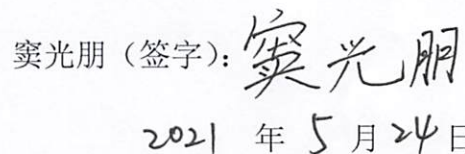 窦光朋（签字）：窦光朋
2021 年 5 月 24 日